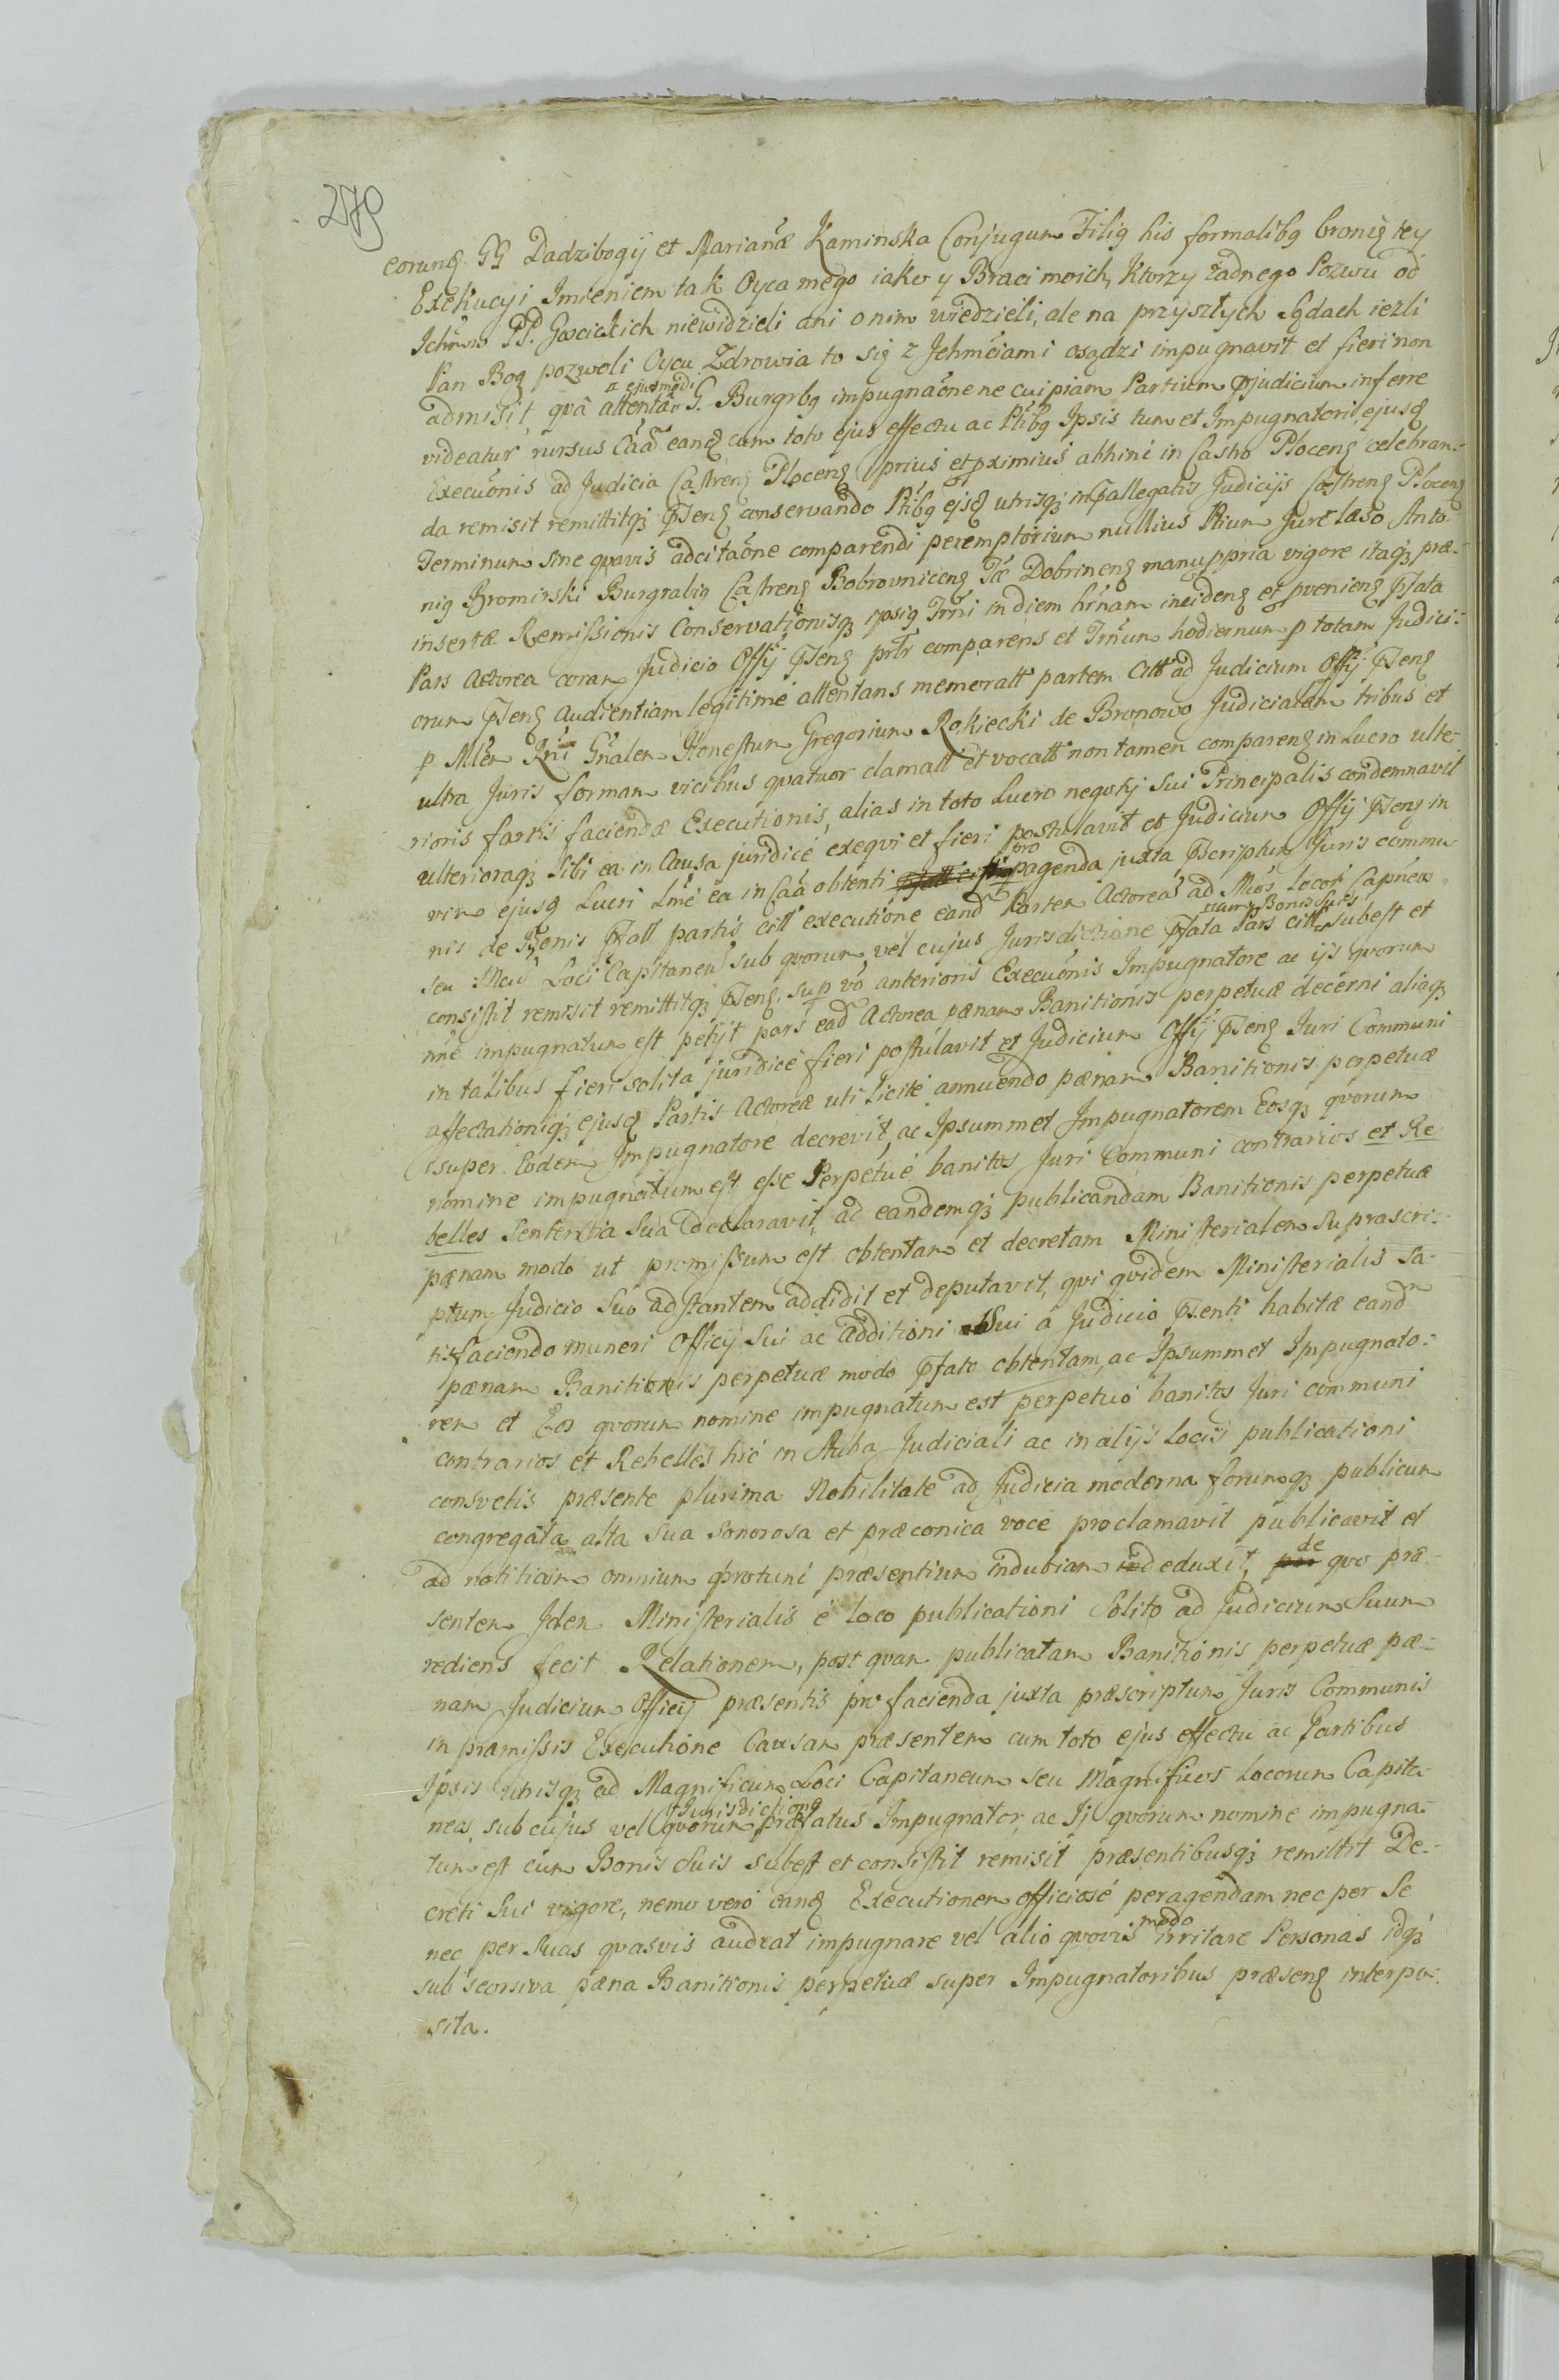 279
eorund GG Dadzibogij et Marianæ Kaminska Conjugum Filig his formalibg bronię tey
Exekucyi Imieniem tak Oyca mego iako y Braci moich, ktorzy żadnego Pozwu od
Ichmw PP. Goscickich niewidzieli ani o nim wiedzieli, ale na przyszłych Sądach iezli
Pan Bog pozwoli Oycu Zdrowia to się z Jehmciami osądzi impugnavit et fieri non
admisit, qvâ attenta a ejusmodi G. Burgrbg impugnaone ne cuipiam Partium pjudicium inferre
videatur rursus Caã eand cum toto ejus effectu ac Ptibg Ipsis tum et Impugnatori ejusd
Execuonis ad Judicia Castren Plocen prius et pximius abhinc in Castro Plocen celebran-
da remisit remittitq psen conservando Ptibg ejsd utrisq in pallegatis Judicijs Castren Plocen
Terminum sine qvavis adcitaone comparendi peremptorium nullius Ptium Jure læso Anto-
nig Bromirski Burgrabig Castren Bobrovnicen Tæ Dobrinen manuppria vigore itaq præ-
insertæ Remissionis Conservationisq ipsig Trni in diem hrnam inciden et pvenien pfata
Pars Actorea coram Judicio Offij psen prlr comparens et Trnum hodiernum p totam Judici-
orum psen Audientiam legitime attentans memoratt partem Citt ad Judicium Offij psen
p Mlem Rni Gnalem Honestum Gregorium Rokiecki de Bronowo Judicialem tribus et
ultra Juris formam vicibus qvatuor clamatt et vocatt non tamen comparen in Lucro ulte-
rioris fortis faciendæ Executionis, alias in toto Lucro negotij Sui Principalis condemnavit
ulterioraq Sibi ea in Causa juridice exeqvi et fieri postulavit et Judicium Offij psen in
vim ejusd Lucri Lme ea in Caa obtenti pro pagenda juxta pscriptum Juris commu-
nis de Bonis pfatt partis citt executione eand Partem Actorea ad Mcos locor Capneos
seu Mcu Loci Capitaneu sub qvorum vel cujus Jurisdictione pfata Pars citt cum Bonis suis subest et
consistit remisit remittitq psen. Sup vo anterioris Execuonis Impugnatore ac ijs qvorum
nne impugnatum est petijt pars ead Actorea pænam Banitionis perpetuæ decerni aliaq
in talibus fieri solita juridice fieri postulavit et Judicium Offij psen Juri Communi
affectationiq ejusd Partis Actoreæ uti licite annuendo pænam Banitionis perpetuæ
super Eodem Impugnatore decrevit, ac Ipsummet Impugnatorem Eosq qvorum
nomine impugnatum est esse Perpetue banitos Juri Communi contrarios et Re-
belles Sententia Sua declaravit, ad eandemq publicandam Banitionis perpetuæ
pænam modo ut promissum est obtentam et decretam Ministerialem Suprascri-
ptum Judicio Suo adstantem addidit et deputavit, qvi qvidem Ministerialis Sa-
tisfaciendo muneri Officij Sui ac additioni Sui a Judicio psenti habitæ eand
pænam Banitionis perpetuæ modo pfato obtentam, ac Ipsummet Impugnato-
rem et Eos qvorum nomine impugnatum est perpetuo banitos Juri communi
contrarios et Rebelles hic in Stuba Judiciali ac in alijs Locis publicationi
consvetis præsente plurima Nobilitate ad Judicia moderna forumq publicum
congregata alta Sua Sonorosa et præconica voce proclamavit publicavit et
ad notitiam omnium protunc præsentium indubiam deduxit, de qvo præ-
sentem Idem Ministerialis e loco publicationi Solito ad Judicium Suum
rediens fecit Relationem, post qvam publicatam Banitionis perpetuæ pæ-
nam Judicium Officij præsentis pro facienda juxta præscriptum Juris Communis
in præmissis Executione Causam præsentem cum toto ejus effectu ac Partibus
Ipsis utrisq ad Magnificum Loci Capitaneum seu Magnificos Locorum Capita-
neos, sub cujus vel qvorum Jurisdictione præfatus Impugnator, ac Ij qvorum nomine impugna-
tum est cum Bonis Suis subest et consistit remisit præsentibusq remittit De-
creti Sui vigore, nemo vero eand Executionem officiose peragendam nec per Se
nec per Suas qvasvis audeat impugnare vel alio qvovis modo irritare Personas idq
sub seorsiva pæna Banitionis perpetuæ super Impugnatoribus præsen interpo-
sita.